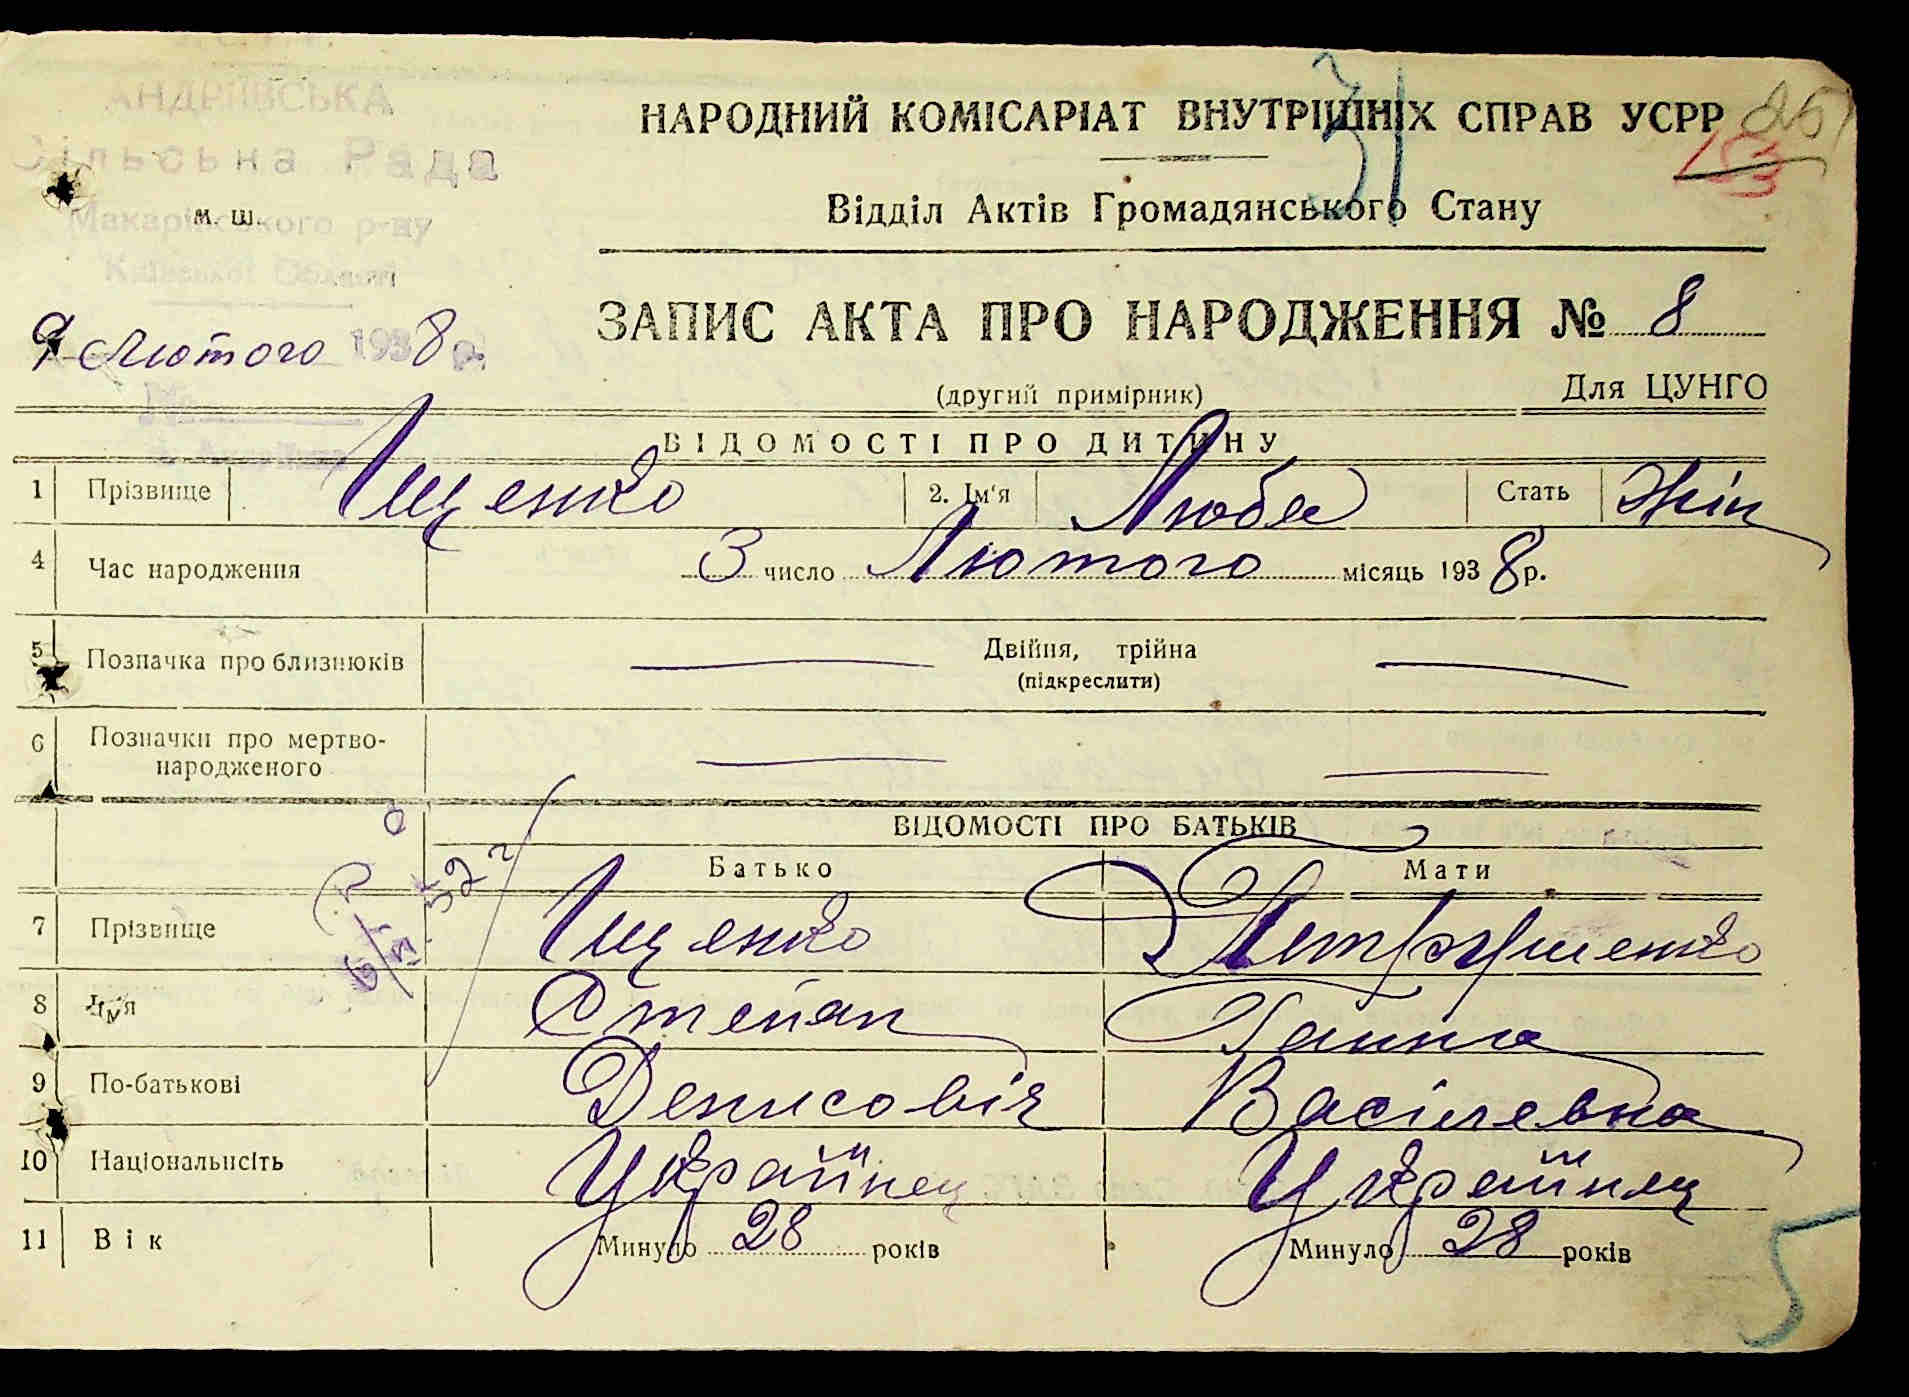 АНДРІЇВСЬКА
Сільська Рада
м. ш.
Макарівського р-ну
Київської Області
9 Лютого 1938 р.
№
с. Андріївка
31
25
НАРОДНИЙ КОМІСАРІАТ ВНУТРІШНІХ СПРАВ УСРР
Відділ Актів Громадянського Стану
ЗАПИС АКТА ПРО НАРОДЖЕННЯ № 8
(другий примірник)
Для ЦУНГО
ВІДОМОСТІ ПРО ДИТИНУ
1 Прізвище Іщенко 2. Ім'я Люба Стать Жін
4 Час народження 3 число Лютого місяць 1938 р.
5 Позначка про близнюків Двійня, трійна
(підкреслити)
6 Позначки про мертво-
народженого
ВІДОМОСТІ ПРО БАТЬКІВ
Батько Мати
7 Прізвище Іщенко Петрушенко
8 Ім'я Степан Ганна
9 По-батькові Денисовіч Васілевна
10 Національність Українец Українец
11 Вік Минуло 28 років Минуло 28 років
5